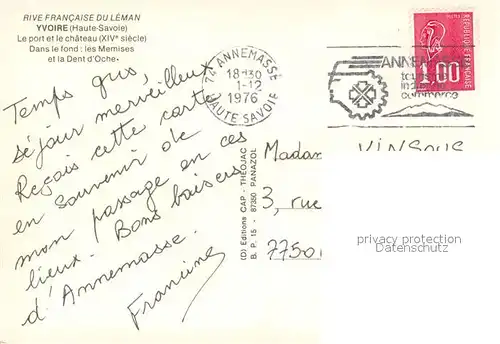 RIVE FRANÇAISE DU LÉMAN
YVOIRE (Haute-Savoie)
Le port et le château (XIVe siècle)
Dans le fond : les Memises
et la Dent d'Oche
Temps gris,
séjour merveilleux
Reçois cette carte
en souvenir de
mon passage en ces
lieux. Bons baisers
d'Annemasse.
Francine
(D) Editions CAP - THÉOJAC
B. P. 15 - 87350 PANAZOL
74 ANNEMASSE
18-30
1-12
1976
HAUTE SAVOIE
ANNEM
tourisme
industrie
commerce
POSTES
REPUBLIQUE FRANÇAISE
1,00
Madam
3, rue
7750
privacy protection
Datenschutz